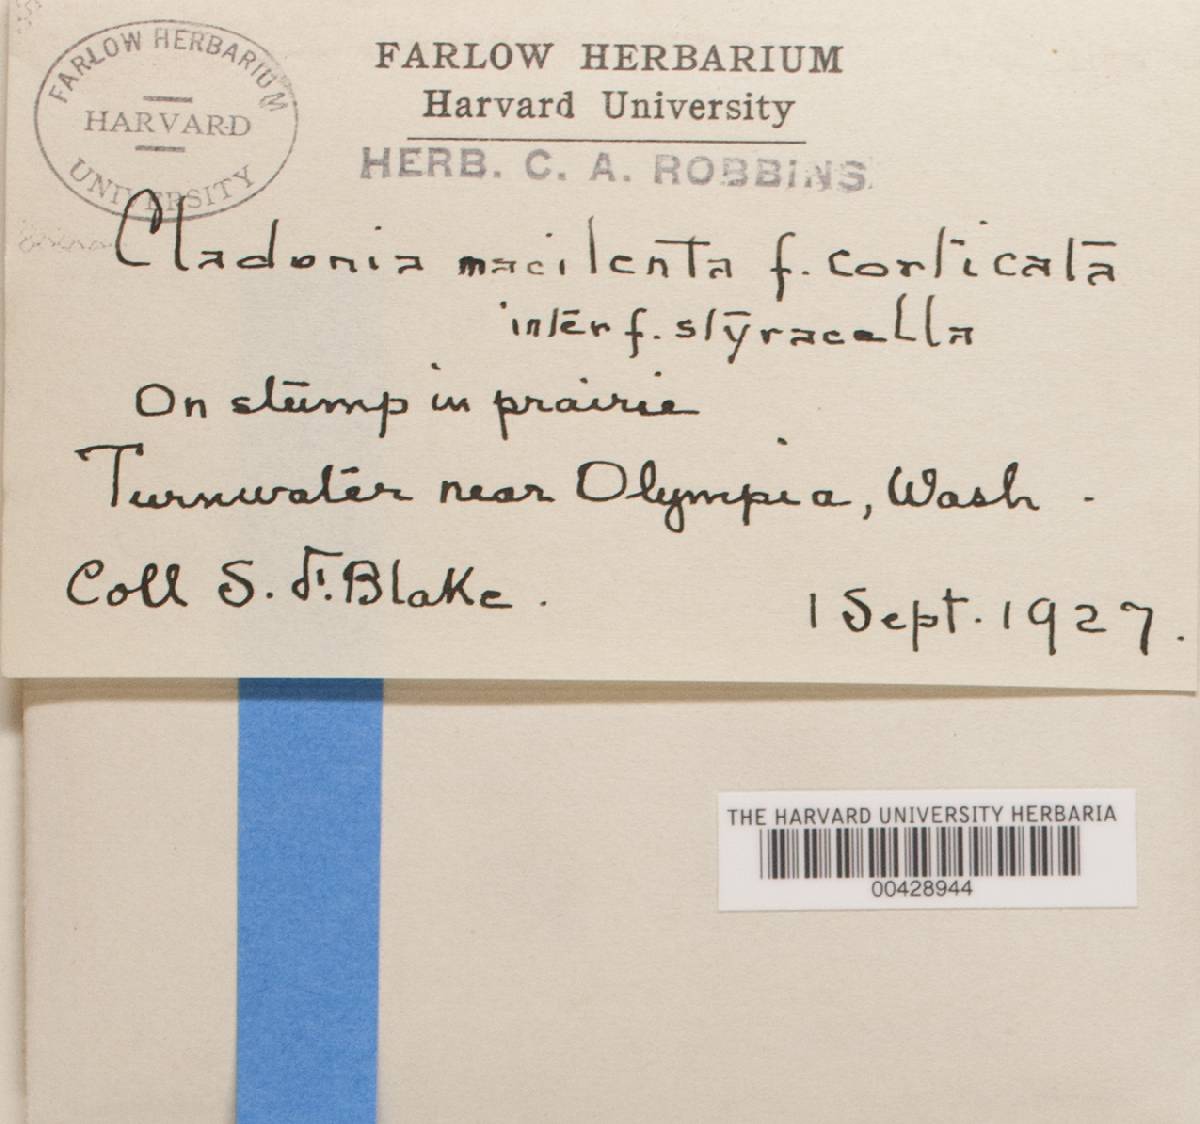 FARLOW HERBARIUM
HARVARD
UNIVERSITY
FARLOW HERBARIUM
Harvard University
HERB. C. A. ROBBINS.
Cladonia macilenta f. corticata
inter f. styracella
On stump in prairie
Tumwater near Olympia, Wash.
Coll S. F. Blake.
1 Sept. 1927.
THE HARVARD UNIVERSITY HERBARIA
00428944